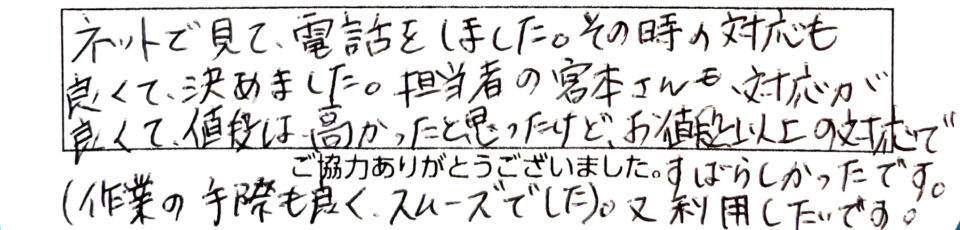 ネットで見て、電話をしました。その時の対応も
良くて、決めました。担当者の宮本さんも、対応が
良くて、値段は、高かったと思ったけど、お値段以上の対応で
ご協力ありがとうございました。
すばらしかったです。
(作業の手際も良く、スムーズでした)。又利用したいです。